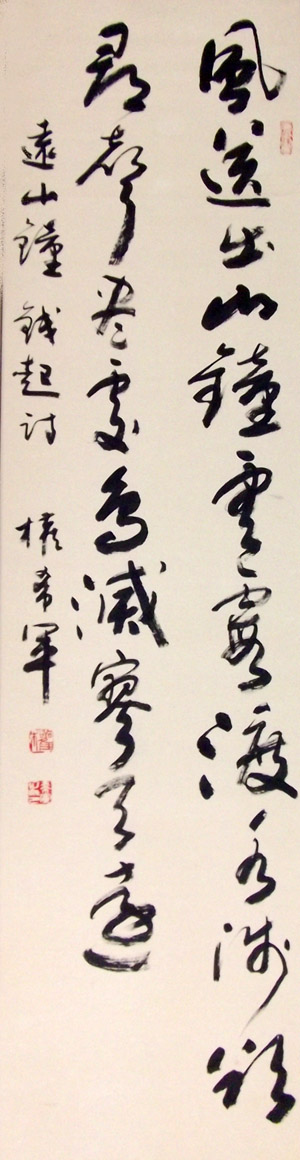 風送出山鐘雲霞渡水淺欲
尋聲盡處鳥滅寥天遠
遠山鐘 錢起詩 權希軍